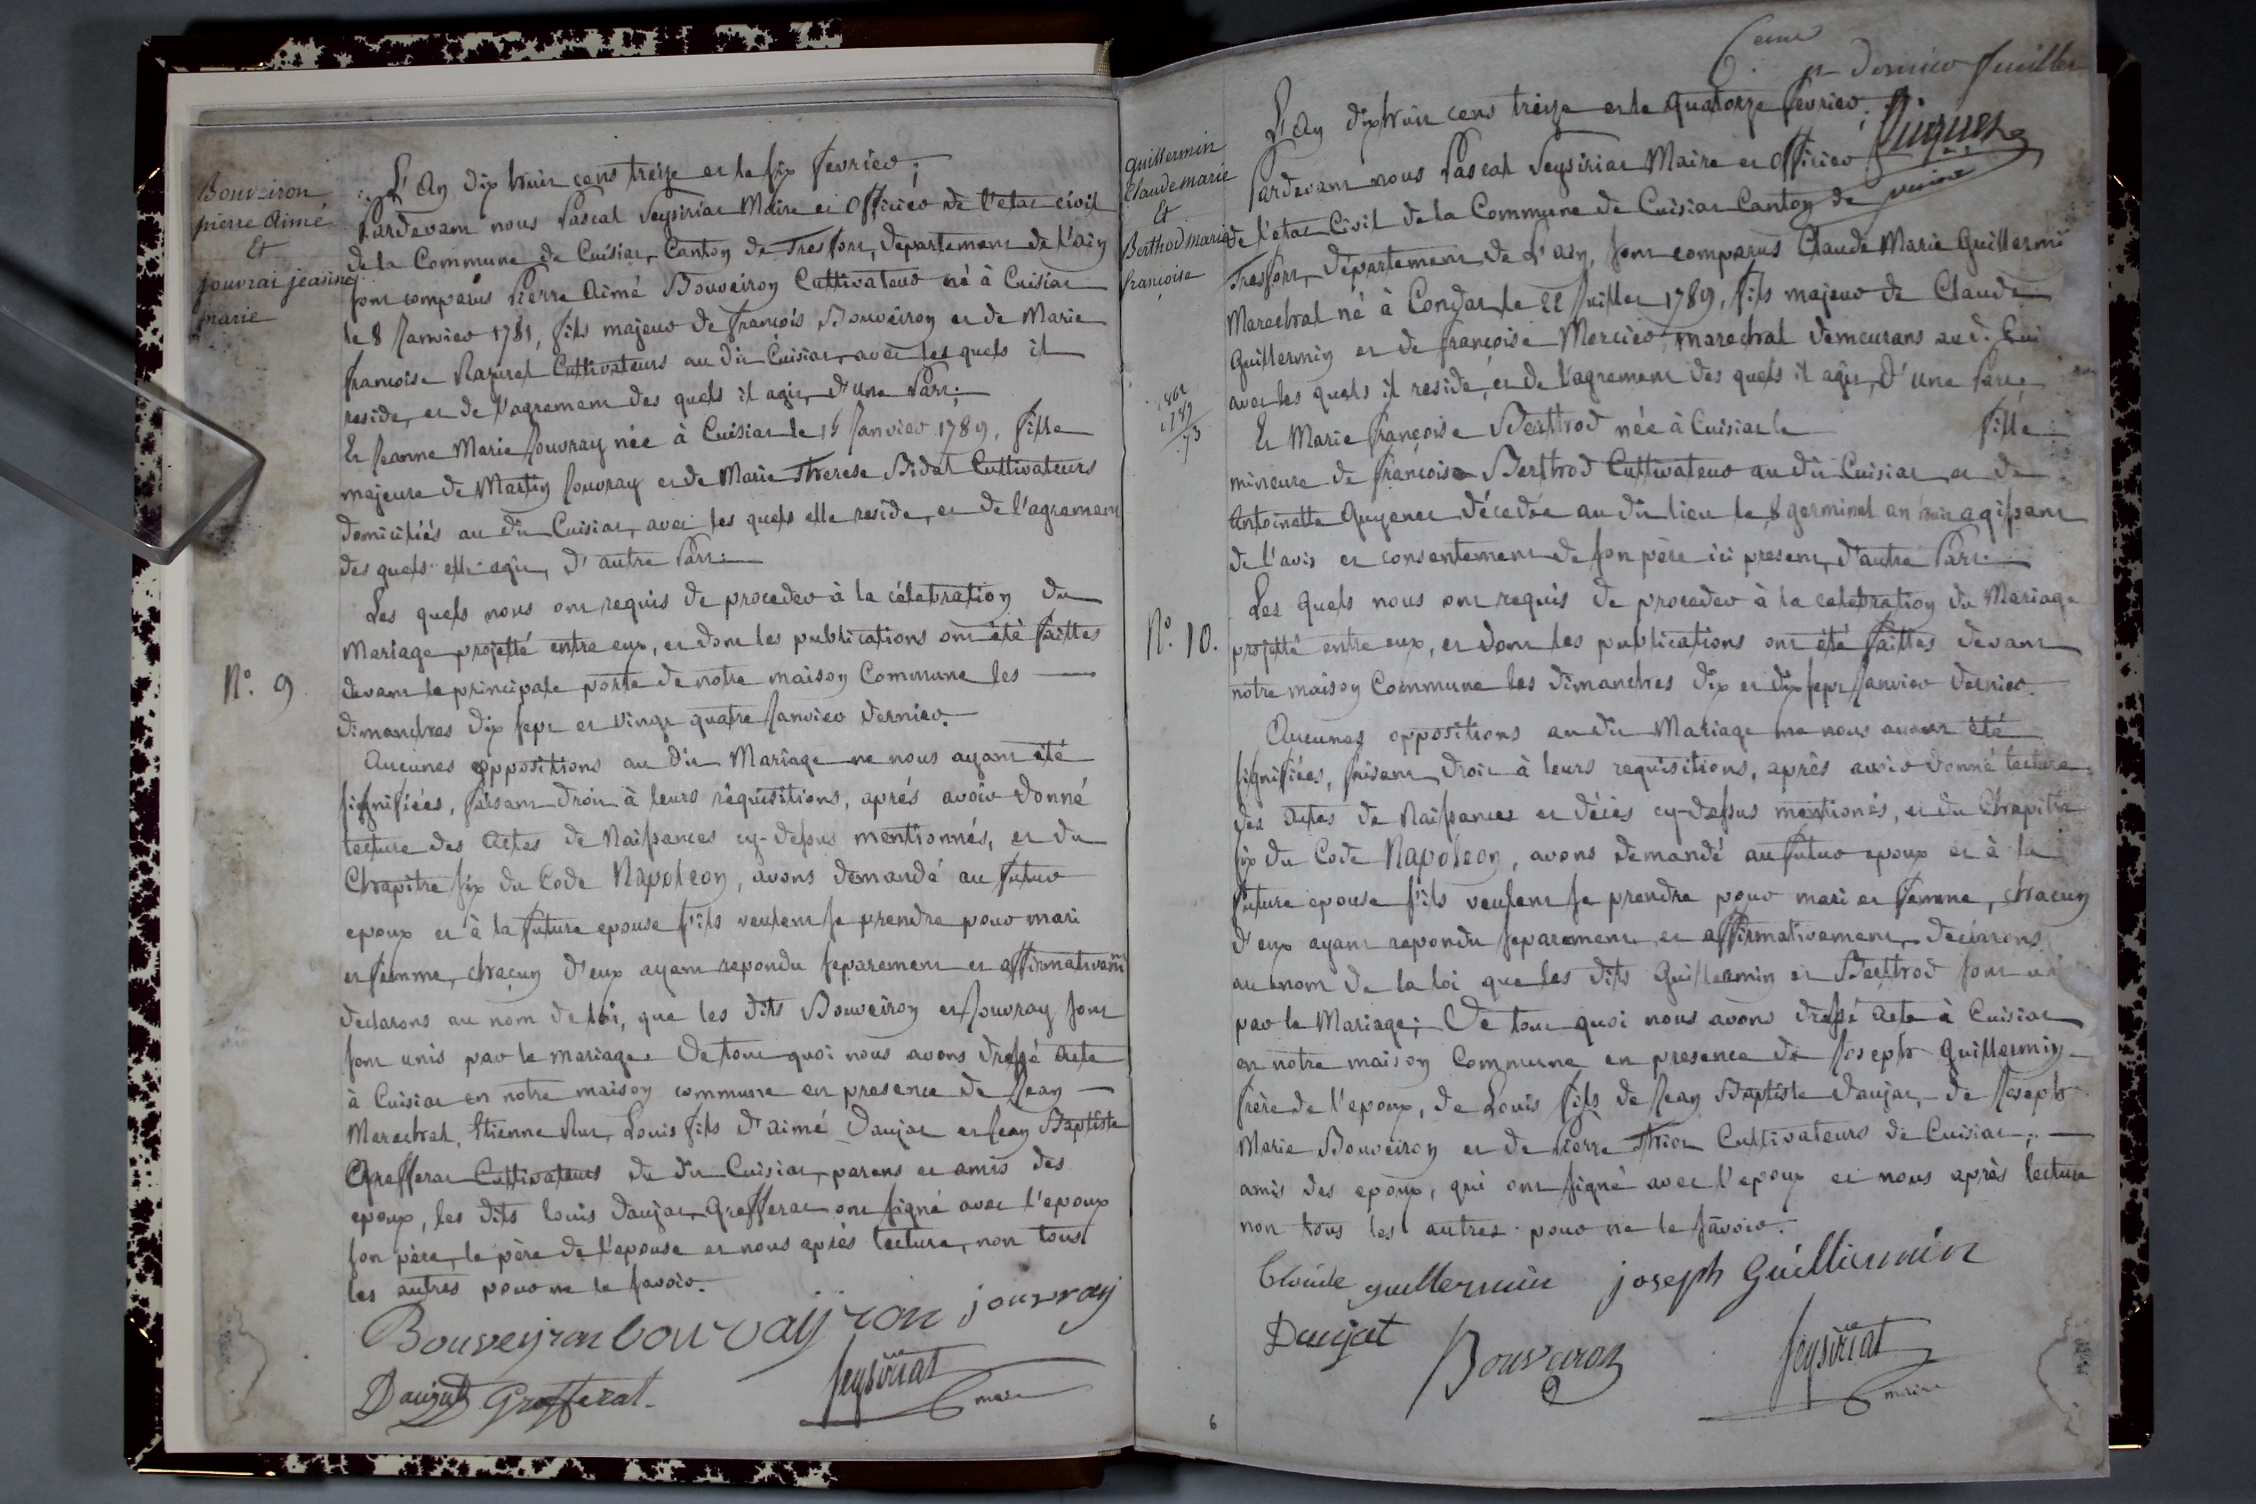 Bouveiron
pierre Aimé
Et
jouvrai jeanne
marie
N.° 9
L'An dix huit cens treize et le six fevrier;
Pardevant nous Pascal Seysiriat Maire et Officier de l'etat civil
de la Commune de Cuisiat, Canton de Tresfort, departement de l'ain
sont comparus Pierre Aimé Bouveiron Cultivateur né à Cuisiat
le 8 Janvier 1781, fils majeur de françois Bouveiron et de Marie
francoise Razurel Cultivateurs au dit Cuisiat, avec les quels il
reside, et de l'agrement des quels il agit, d'une Part;
Et Jeanne Marie Jouvray née à Cuisiat le Janvier 1789, fille
majeure de Martin Jouvray et de Marie Therese Bidal Cultivateurs
domiciliés au dit Cuisiat, avec les quels elle reside, et de l'agrement
des quels elle agit, d'autre Part.
Les quels nous ont requis de proceder à la célebration du
Mariage projetté entre eux, et dont les publications ont été faittes
devant la principale porte de notre maison Commune les
dimanches dix sept et vingt quatre Janvier dernier.
Aucunes oppositions au dit Mariage ne nous ayant été
signifiées, faisant droit à leurs réquisitions, aprés avoir donné
lecture des Actes de Naissances cy-dessus mentionnés, et du
Chapitre six du Code Napoleon, avons demandé au futur
epoux et à la future epouse s'ils veulent se prendre pour mari
et femme, chacun d'eux ayant repondu separement et affirmativemt
declarons au nom de loi, que les dits Bouveiron et Jouvray sont
sont unis par le mariage. De tout quoi nous avons dressé Acte
à Cuisiat en notre maison commune en presence de Jean
Marechal, Etienne Louis fils d'aimé Daujat et Jean Baptiste
Grefferat Cultivateurs du dit Cuisiat, parens et amis des
epoux, les dits louis Daujat, Grefferat ont signé avec l'epoux
son père, le père de l'epouse et nous après lecture, non tous
les autres pour ne le savoir.
Bouveyron bouvayron jouvray
Daujat Grefferat Seysiriat
maire
6eme et dernier feuillet
Guillermin
Claude marie
Et
Berthod marie
françoise
N.° 10.
L'An dix huit cens treize et le quatorze fevrier,
Pardevant nous Pascal Seysiriat Maire et Officier
de l'etat Civil de la Commune de Cuisiat Canton de
Tresfort, département de L'ain, sont comparus Claude Marie Guillermi
Marechal né à Condat le 22 Juillet 1789, fils majeur de Claude
Guillermin et de françoise Mercier marechal demeurans au d. Cui
avec les quels il reside, et de l'agrement des quels il agit, d'une Part
Et Marie françoise Berthod née à Cuisiat le fille
mineure de françois Berthod Cultivateur au dit Cuisiat et de
Antoinette Guyenet décedée au dit lieu le 8 germinal an agissant
de l'avis et consentement de son père ici present, d'autre Part.
Les Quels nous ont requis de proceder à la celebration du Mariage
projetté entre eux, et dont les publications ont été faittes devant
notre maison Commune les dimanches dix et dix sept Janvier dernier.
Aucunes oppositions au dit Mariage ne nous ayant été
signifiées, faisant droit à leurs requisitions, après avoir donné lecture
des Actes de Naissances et décès cy-dessus mentionés, et du Chapitre
six du Code Napoleon, avons demandé au futur epoux et à la
future epouse s'ils veulent se prendre pour mari et femme, chacun
d'eux ayant repondu separement et affirmativement, declarons
au nom de la loi que les dits Guillermin et Berthod sont un
par le Mariage; De tout quoi nous avons dressé Acte à Cuisiat
en notre maison Commune en presence de Joseph Guillermin
frère de l'epoux, de Louis fils de Jean Baptiste Daujat, de Joseph
Marie Bouveiron et de Pierre Cultivateurs de Cuisiat,
amis des epoux, qui ont signé avec l'epoux et nous après lecture
non tous les autres pour ne le savoir.
Claude guillermin joseph Guillermin
Daujat Bouveiron Seysiriat
maire
6